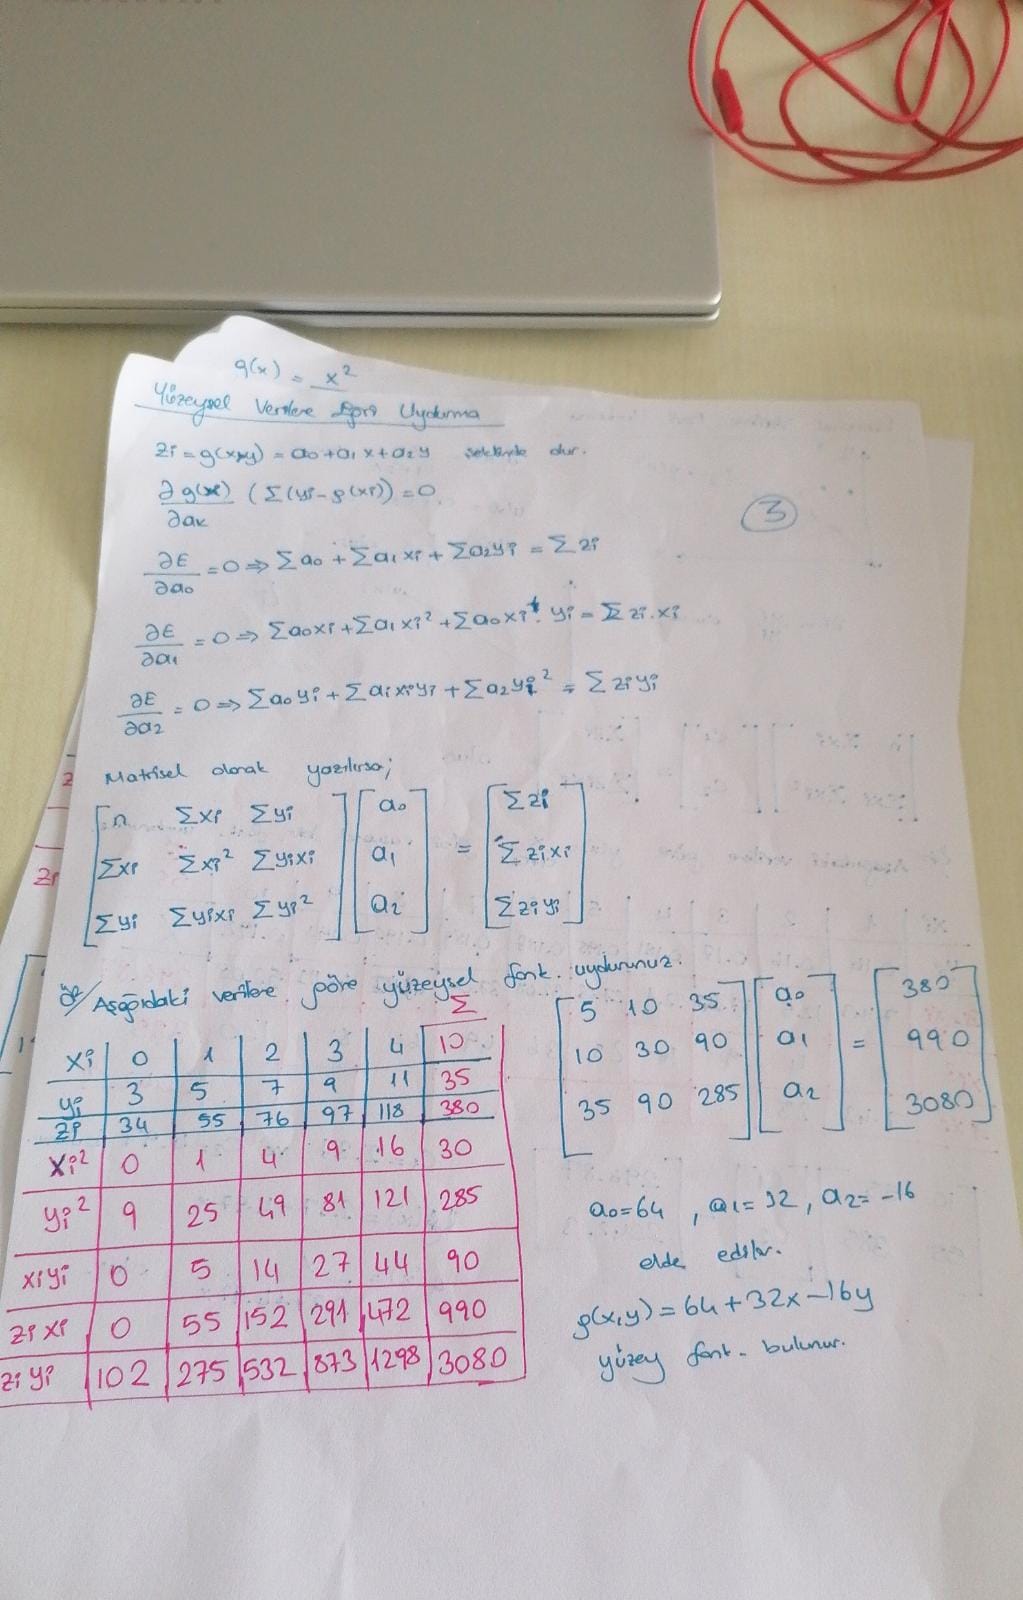 g(x) = x²
Yüzeysel Verilere Eğri Uydurma
zi = g(x,y) = a0+a1x+a2y şeklinde dir.
∂g(x) (Σ(yi-g(xi))=0
∂ak
∂E/∂a0 = 0 ⇒ Σa0 + Σa1xi + Σa2yi = Σzi
∂E/∂a1 = 0 ⇒ Σa0xi + Σa1xi² + Σa0xi. yi = Σ zi.xi
∂E/∂a2 = 0 ⇒ Σa0yi + Σa1xiyi + Σa2yi² = Σziyi
3
Matrisel olarak yazılırsa;
[n Σxi Σyi] [a0] = [Σzi]
[Σxi Σxi² Σyixi] [a1] [Σzixi]
[Σyi Σyixi Σyi²] [a2] [Σziyi]
Ör/ Aşağıdaki verilere göre yüzeysel fonk. uydurunuz.
Σ
xi 0 1 2 3 4 10
yi 3 5 7 9 11 35
zi 34 55 76 97 118 380
xi² 0 1 4 9 16 30
yi² 9 25 49 81 121 285
xiyi 0 5 14 27 44 90
zixi 0 55 152 291 472 990
ziyi 102 275 532 873 1298 3080
[5 10 35] [a0] = [380]
[10 30 90] [a1] [990]
[35 90 285] [a2] [3080]
a0=64 , a1=32, a2=-16
elde edilir.
g(x,y)=64+32x-16y
yüzey fonk. bulunur.